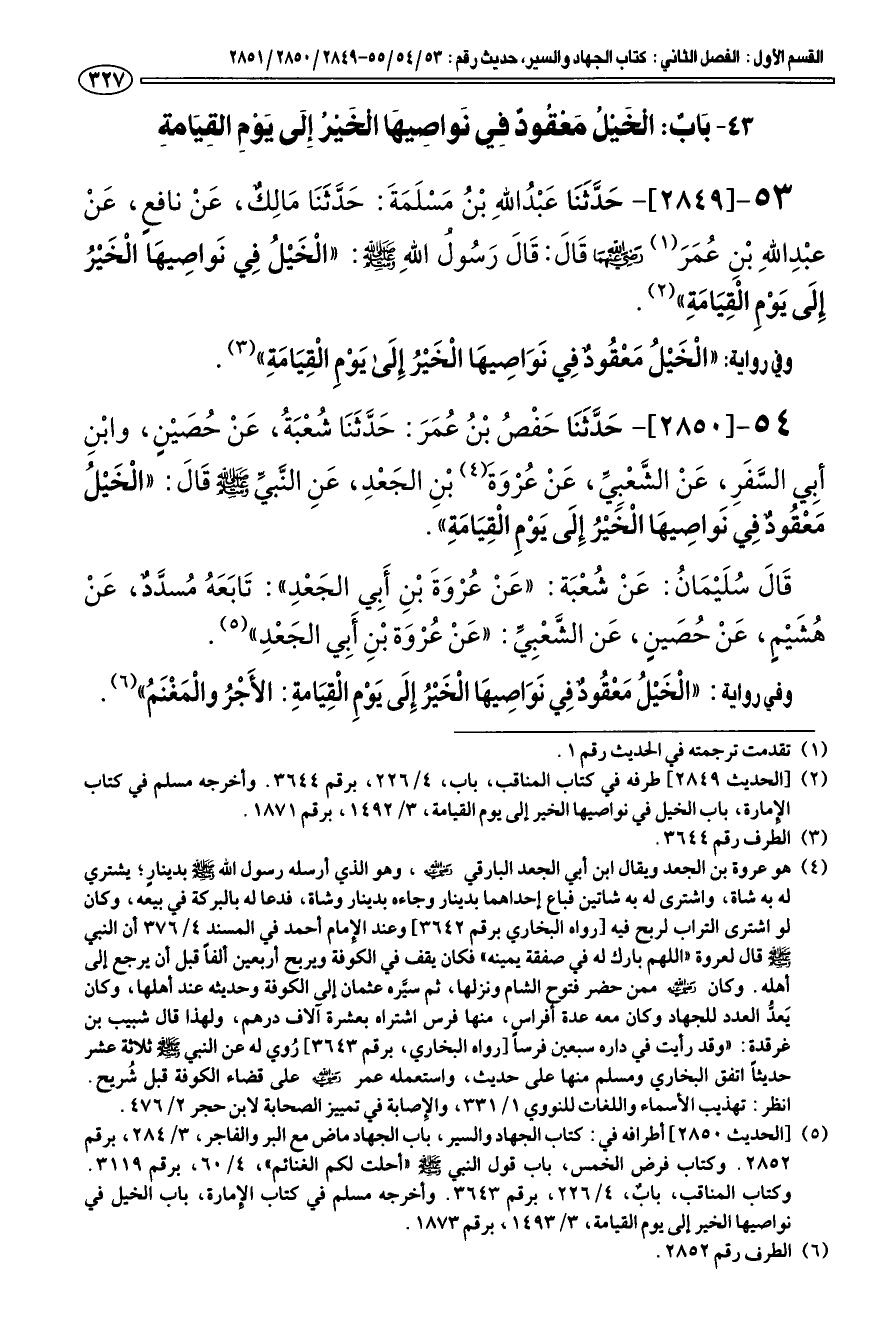 القسم الأول: الفصل الثاني: كتاب الجهاد والسير، حديث رقم: ٥٣/٥٤/٥٥-٢٨٤٩/٢٨٥٠/٢٨٥١
٣٢٧
٤٣- بَابٌ: الْخَيْلُ مَعْقُودٌ فِي نَواصِيهَا الْخَيْرُ إِلَى يَوْمِ القِيَامةِ
٥٣-[٢٨٤٩]- حَدَّثَنَا عَبْدُاللهِ بْنُ مَسْلَمَةَ: حَدَّثَنَا مَالِكٌ، عَنْ نافعٍ، عَنْ
عبْدِاللهِ بْنِ عُمَرَ(١) رَضِيَ اللهُ عَنْهُمَا قَالَ: قَالَ رَسُولُ اللهِ ﷺ: «الْخَيْلُ فِي نَواصِيهَا الْخَيْرُ
إِلَى يَوْمِ الْقِيَامَةِ»(٢).
وفي رواية: «الْخَيْلُ مَعْقُودٌ فِي نَوَاصِيهَا الْخَيْرُ إِلَىٰ يَوْمِ الْقِيَامَةِ»(٣).
٥٤-[٢٨٥٠]- حَدَّثَنَا حَفْصُ بْنُ عُمَرَ: حَدَّثَنَا شُعْبَةُ، عَنْ حُصَيْنٍ، وابْنِ
أبِي السَّفَرِ، عَنْ الشَّعْبِيِّ، عَنْ عُرْوَةَ(٤) بْنِ الجَعْدِ، عَنِ النَّبِيِّ ﷺ قَالَ: «الْخَيْلُ
مَعْقُودٌ فِي نَواصِيهَا الْخَيْرُ إِلَى يَوْمِ الْقِيَامَةِ».
قَالَ سُلَيْمَانُ: عَنْ شُعْبَة: «عَنْ عُرْوَةَ بْنِ أَبِي الجَعْدِ»: تَابَعَهُ مُسدَّدٌ، عَنْ
هُشَيْمٍ، عَنْ حُصَينٍ، عَنِ الشَّعْبِيِّ: «عَنْ عُرْوَة بْنِ أَبِي الجَعْدِ»(٥).
وفي رواية: «الْخَيْلُ مَعْقُودٌ فِي نَوَاصِيهَا الْخَيْرُ إِلَى يَوْمِ الْقِيَامةِ: الأَجْرُ والْمَغْنَمُ»(٦).
(١) تقدمت ترجمته في الحديث رقم ١.
(٢) [الحديث ٢٨٤٩] طرفه في كتاب المناقب، باب، ٤/ ٢٢٦، برقم ٣٦٤٤. وأخرجه مسلم في كتاب
الإمارة، باب الخيل في نواصيها الخير إلى يوم القيامة، ٣/ ١٤٩٢، برقم ١٨٧١.
(٣) الطرف رقم ٣٦٤٤.
(٤) هو عروة بن الجعد ويقال ابن أبي الجعد البارقي رضي الله عنه، وهو الذي أرسله رسول الله ﷺ بدينارٍ؛ يشتري
له به شاة، واشترى له به شاتين فباع إحداهما بدينار وجاءه بدينار وشاة، فدعا له بالبركة في بيعه، وكان
لو اشترى التراب لربح فيه [رواه البخاري برقم ٣٦٤٢] وعند الإمام أحمد في المسند ٤/ ٣٧٦ أن النبي
ﷺ قال لعروة «اللهم بارك له في صفقة يمينه» فكان يقف في الكوفة ويربح أربعين ألفاً قبل أن يرجع إلى
أهله. وكان رضي الله عنه ممن حضر فتوح الشام ونزلها، ثم سيَّره عثمان إلى الكوفة وحديثه عند أهلها، وكان
يَعدُّ العدد للجهاد وكان معه عدة أفراس، منها فرس اشتراه بعشرة آلاف درهم، ولهذا قال شبيب بن
غرقدة: «وقد رأيت في داره سبعين فرساً [رواه البخاري، برقم ٣٦٤٣] رُوي له عن النبي ﷺ ثلاثة عشر
حديثاً اتفق البخاري ومسلم منها على حديث، واستعمله عمر رضي الله عنه على قضاء الكوفة قبل شُريح.
انظر: تهذيب الأسماء واللغات للنووي ١/ ٣٣١، والإصابة في تمييز الصحابة لابن حجر ٢/ ٤٧٦.
(٥) [الحديث ٢٨٥٠] أطرافه في: كتاب الجهاد والسير، باب الجهاد ماض مع البر والفاجر، ٣/ ٢٨٤، برقم
٢٨٥٢. وكتاب فرض الخمس، باب قول النبي ﷺ «أحلت لكم الغنائم»، ٤/ ٦٠، برقم ٣١١٩.
وكتاب المناقب، بابٌ، ٤/ ٢٢٦، برقم ٣٦٤٣. وأخرجه مسلم في كتاب الإمارة، باب الخيل في
نواصيها الخير إلى يوم القيامة، ٣/ ١٤٩٣، برقم ١٨٧٣.
(٦) الطرف رقم ٢٨٥٢.